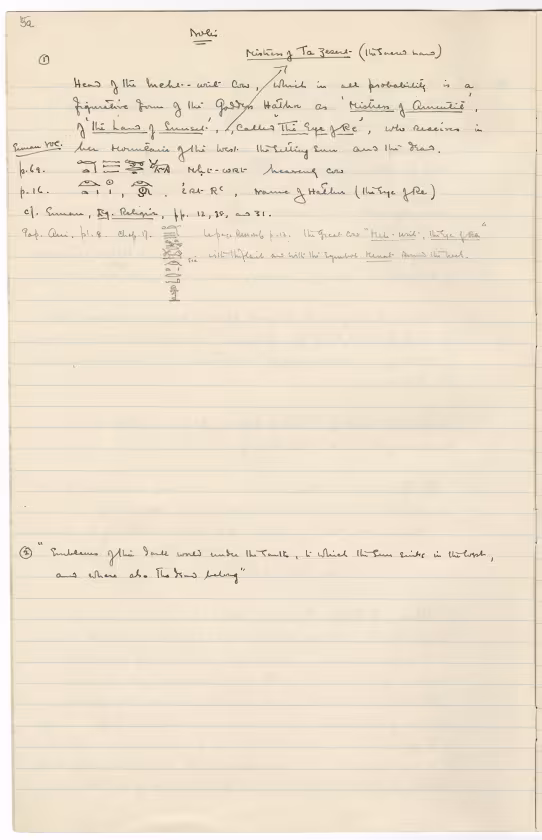 52
Notes
Mistress of Ta Zesert (the Sacred Land)
① Head of the Meht-wrt Cow, which in all probability is a
figurative form of the Goddess Hathor as 'Mistress of Amentit',
of 'the Land of Sunset', called 'The Eye of Re', who receives in
her Mountain of the West the Setting Sun and the Dead.
Erman voc.
p.69. Mḥt-wrt heavenly cow
p.16. irt Rʿ, Name of Hathor (the Eye of Re)
cf. Erman, Eg. Religion, pp. 12, 30, and 31.
Pap. Ani, pl. 8. Chap. 17. p. 12. The Great Cow "Meh-wrt, the Eye of Ra"
with the flail and with the symbol around the neck.
② "Emblems of the dark world under the Earth, to which the Sun sinks in the West,
and where also the dead belong"